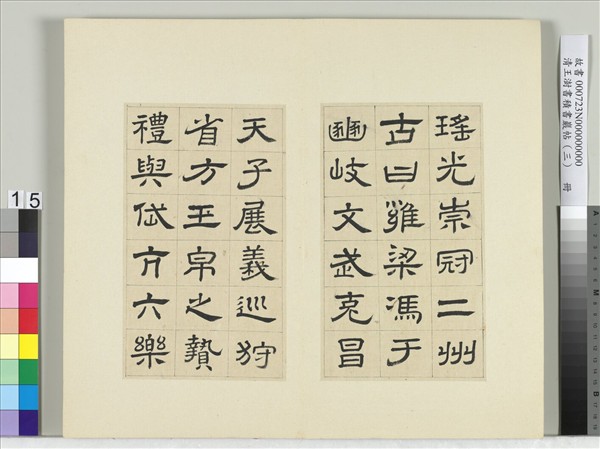 瑤光崇冠二州
古曰雍梁馮于
豳岐文武克昌
天子展義巡狩
省方玉帛之贄
禮與岱亢六樂
故書 000723N000000000
清王澍書積書巖帖（三） 冊
15